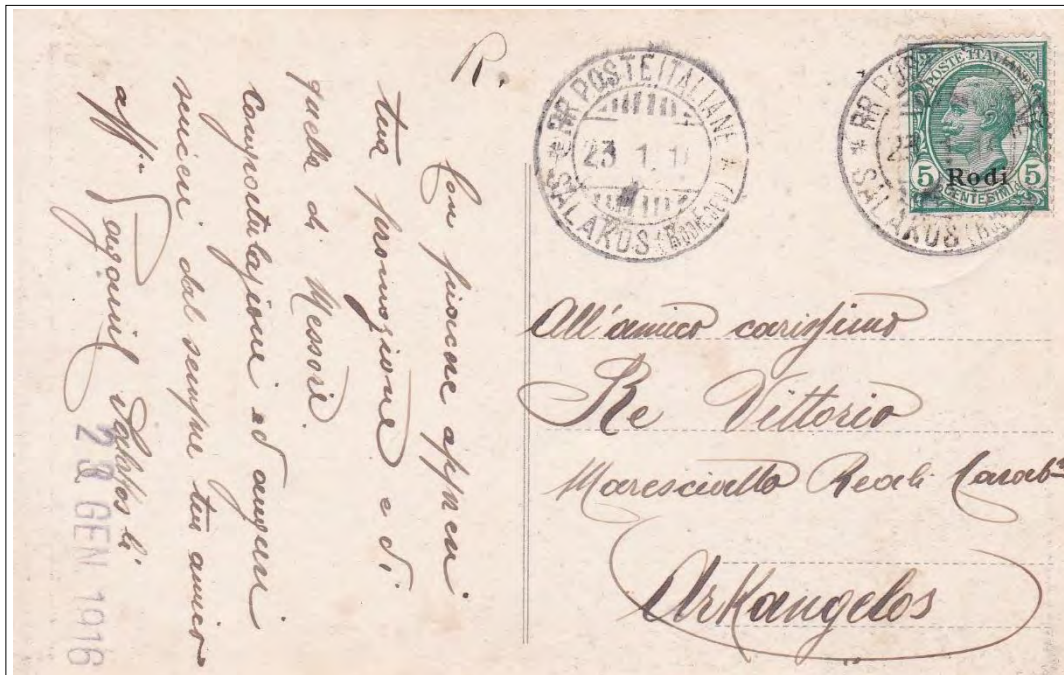 R.
Con piacere appresi
tua promozione e di
quella di Messore.
Congratulazioni ed auguri
sinceri dal sempre tuo amico
aff.
Salakos li
23 GEN. 1916
RR POSTE ITALIANE
23 1 1
SALAKOS (RODI EGEO)
RR POSTE ITALIANE
SALAKOS
POSTE ITALIANE
5 5
Rodi
CENTESIMI
All'amico carissimo
Re Vittorio
Maresciallo Reali Carabri
Arkangelos